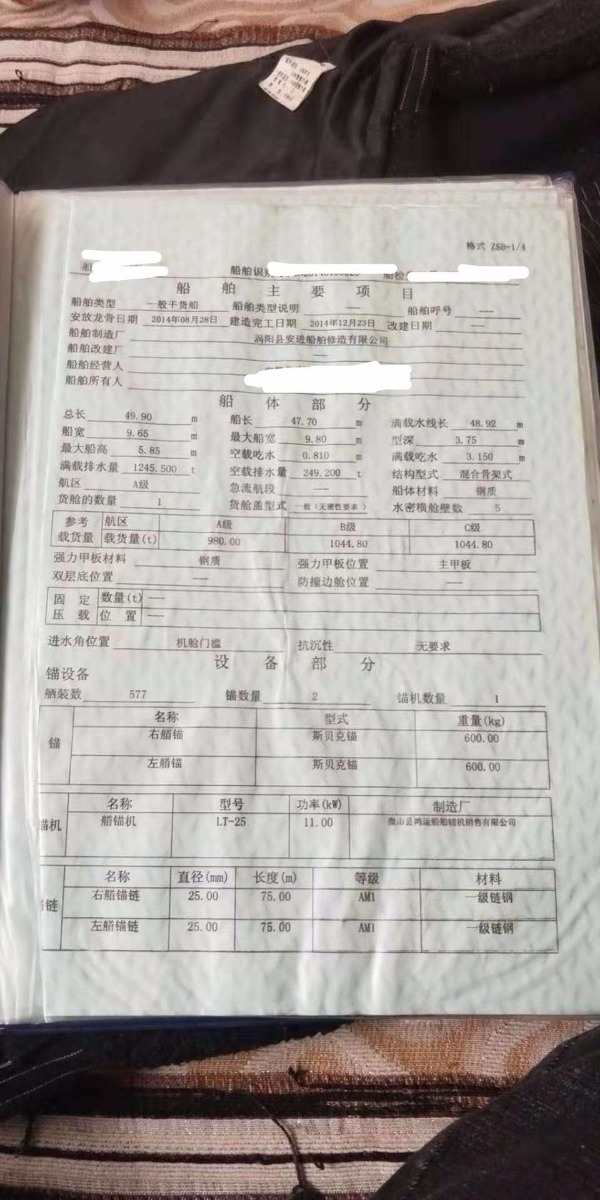 格式 ZSB-1/4
船舶识
船舶主要项目
船舶类型 一般干货船 船舶类型说明 —— 船舶呼号 ——
安放龙骨日期 2014年08月28日 建造完工日期 2014年12月23日 改建日期 ——
船舶制造厂 涡阳县安进船舶修造有限公司
船舶改建厂 —
船舶经营人
船舶所有人
船体部分
总长 49.90 m 船长 47.70 m 满载水线长 48.92 m
船宽 9.65 m 最大船宽 9.80 m 型深 3.75 m
最大船高 5.85 m 空载吃水 0.810 m 满载吃水 3.150 m
满载排水量 1245.500 t 空载排水量 249.200 t 结构型式 混合骨架式
航区 A级 急流航段 —— 船体材料 钢质
货舱的数量 1 货舱盖型式 一般（无密性要求） 水密横舱壁数 5
参考载货量 航区 A级 B级 C级
载货量(t) 980.00 1044.80 1044.80
强力甲板材料 钢质 强力甲板位置 主甲板
双层底位置 —— 防撞边舱位置 ——
固定压载 数量(t) ——
位置 ——
进水角位置 机舱门槛 抗沉性 无要求
设备部分
锚设备
舾装数 577 锚数量 2 锚机数量 1
锚 名称 型式 重量(kg)
右艏锚 斯贝克锚 600.00
左艏锚 斯贝克锚 600.00
锚机 名称 型号 功率(kW) 制造厂
艏锚机 LT-25 11.00 微山县鸿运船舶辅机销售有限公司
链 名称 直径(mm) 长度(m) 等级 材料
右艏锚链 25.00 75.00 AM1 一级链钢
左艏锚链 25.00 75.00 AM1 一级链钢